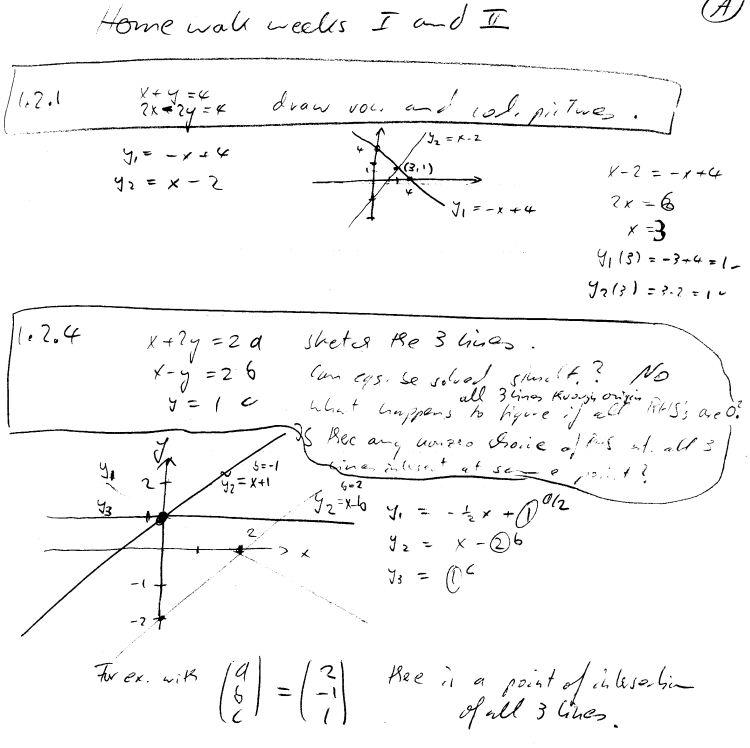 Home walk weeks I and II
(A)
1.2.1 x+y=4 draw row and col. pictures.
2x-2y=4
y₁ = -x+4
y₂ = x-2
y₂ = x-2
4
1
(3,1)
4
y₁ = -x+4
x-2 = -x+4
2x = 6
x = 3
y₁(3) = -3+4 = 1
y₂(3) = 3-2 = 1
1.2.4 x+2y = 2 a sketch the 3 lines.
x-y = 2 b Can eqs. be solved simult.? NO
all 3 lines through origin
y = 1 c what happens to figure if all RHS's are 0?
Is there any nonzero choice of RHS s.t. all 3
lines intersect at same point?
y
y₁
2
y₃
b=-1
ỹ₂ = x+1
b=2
y₂ = x-b
2
> x
-1
-2
y₁ = -½x + 1 a/2
y₂ = x - 2 b
y₃ = 1 c
For ex. with (a b c) = (2 -1 1) there is a point of intersection
of all 3 lines.